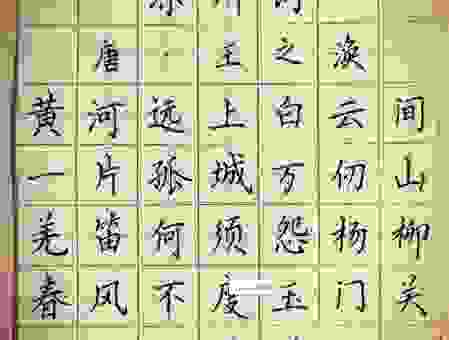 唐·王之涣
黄河远上白云间
一片孤城万仞山
羌笛何须怨杨柳
春风不度玉门关